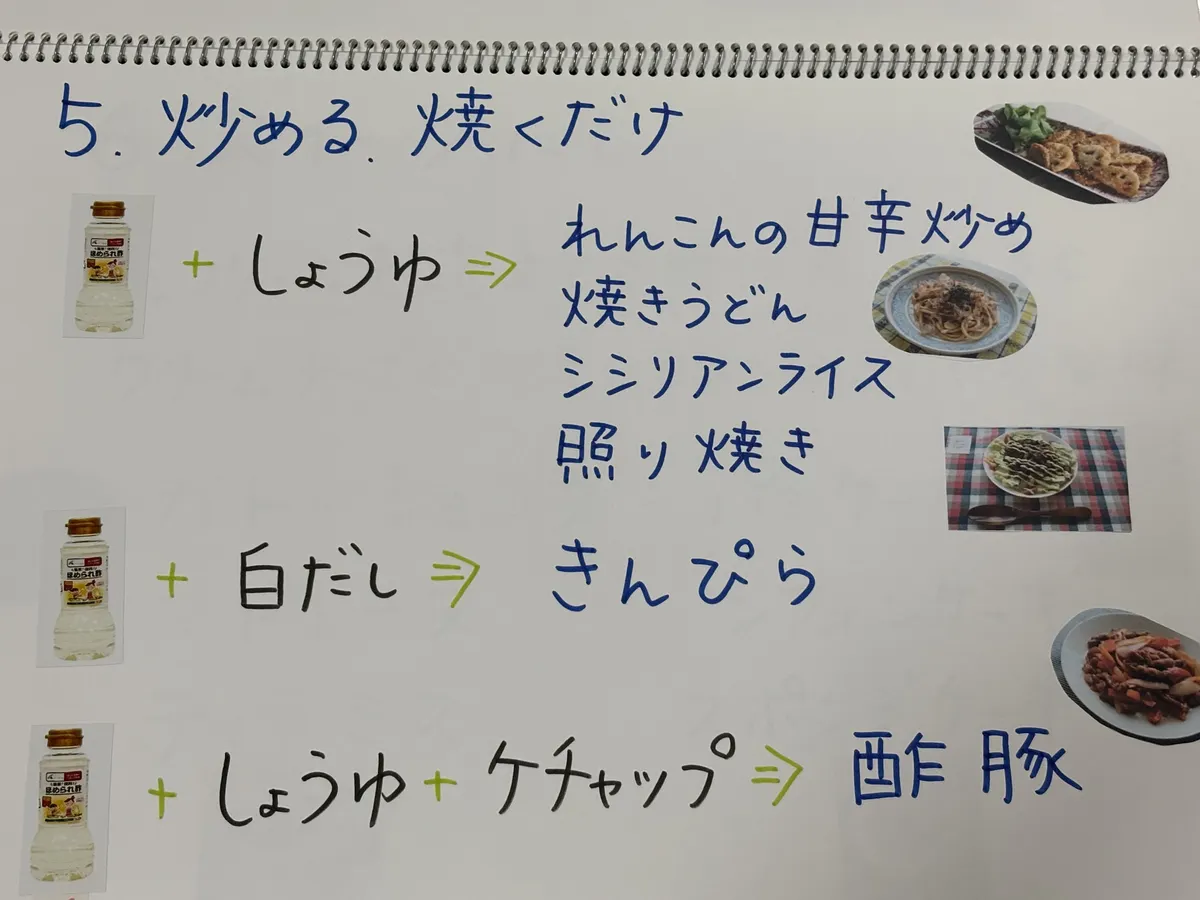 5. 炒める. 焼くだけ
ほめられ酢
+ しょうゆ ⇒ れんこんの甘辛炒め
焼きうどん
シシリアンライス
照り焼き
ほめられ酢
+ 白だし ⇒ きんぴら
ほめられ酢
+ しょうゆ + ケチャップ ⇒ 酢豚